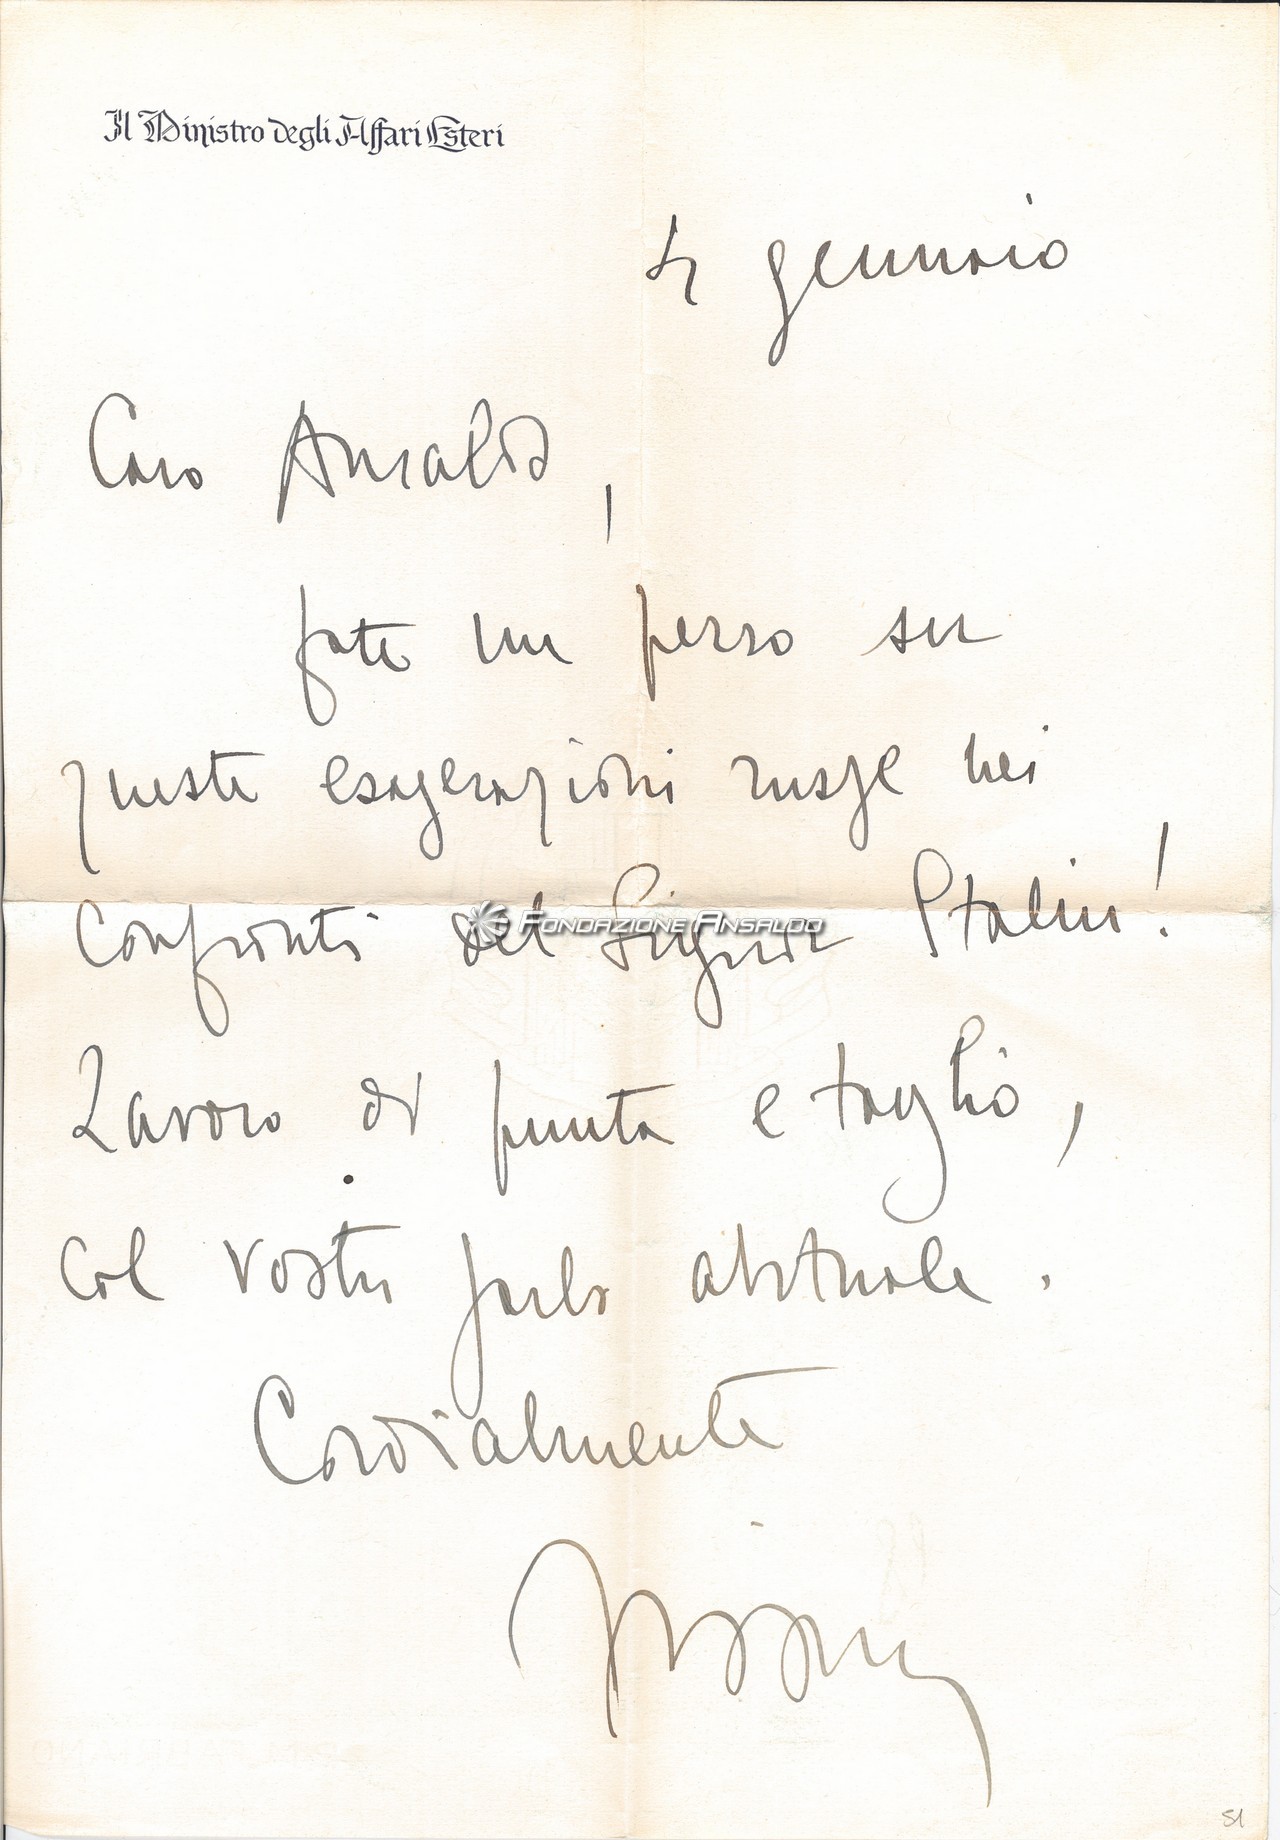 Il Ministro degli Affari Esteri
4 gennaio
Caro Ansaldo,
fate un pezzo su
queste esagerazioni russe nei
confronti del Signor Stalin!
FONDAZIONE ANSALDO
Lavoro di punta e taglio,
col vostro garbo abituale.
Cordialmente
51